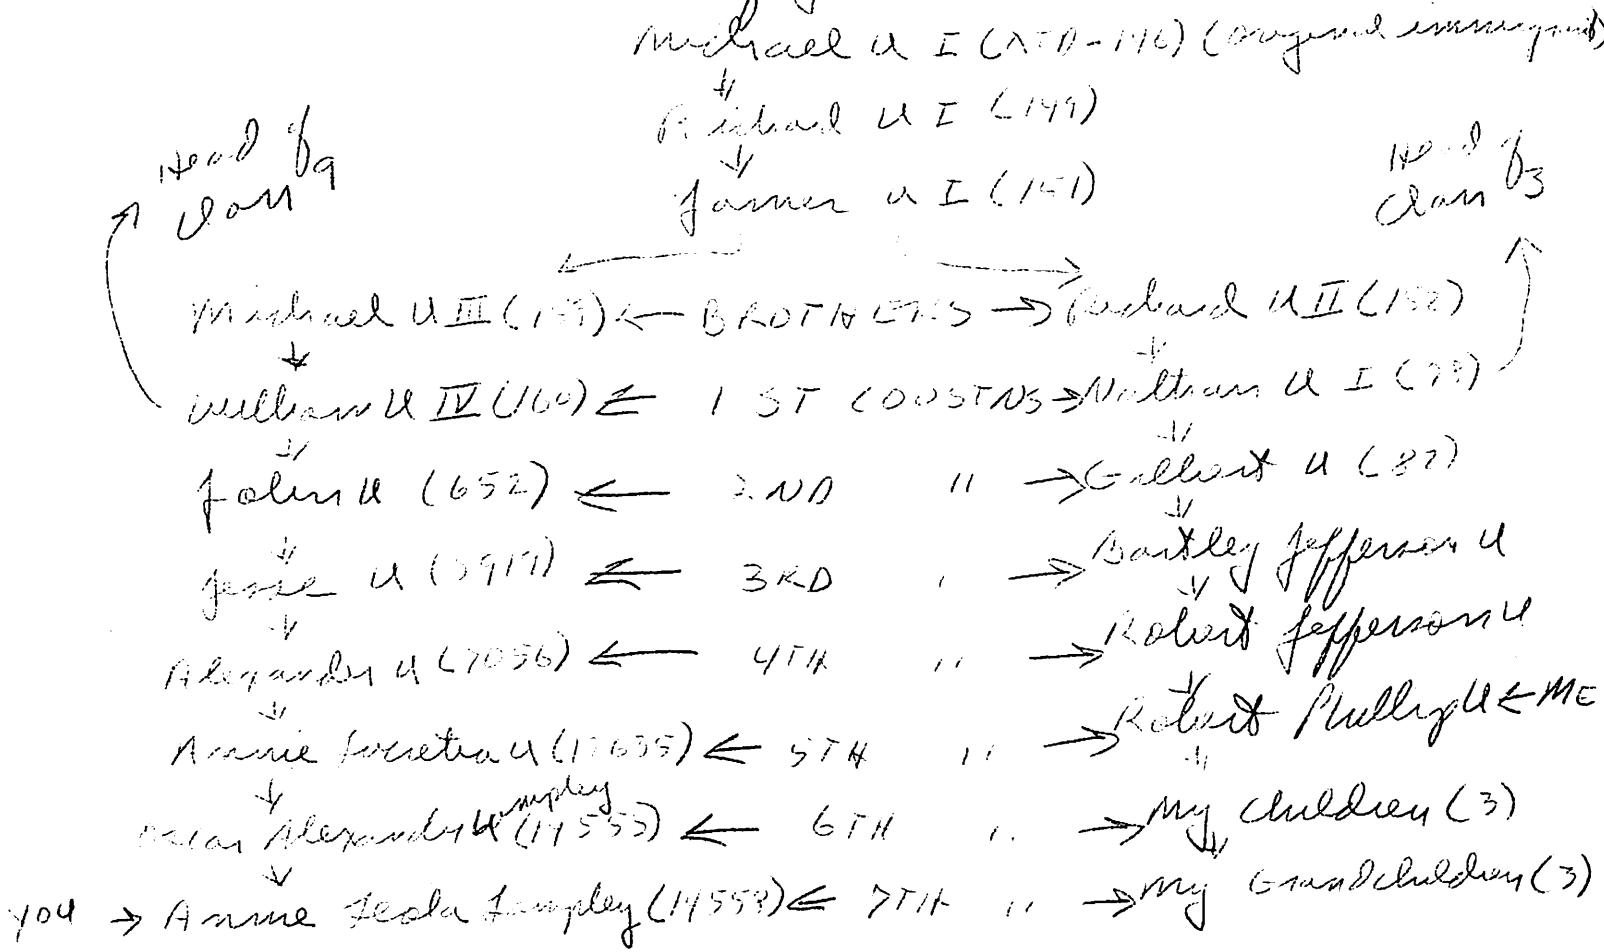 Michael U I ( -146) (original immigrant)
↓
Richard U I (149)
↓
James U I (151)
Head of
Clan 9
Head of
Clan 3
Michael U III (159) ← BROTHERS → Richard U II (152)
↓ ↓
William U IV (160) ← 1 ST COUSINS → Nathan U I (79)
↓ ↓
John U (652) ← 2ND " → Gilbert U (82)
↓ ↓
Jesse U ← 3RD " → Bartley Jefferson U
↓ ↓
Alexander U (7056) ← 4TH " → Robert Jefferson U
↓ ↓
Annie Lucretia U ← 5TH " → Robert Phillip U ← ME
↓ ↓
Oscar Alexander Lampley (14555) ← 6TH " → My Children (3)
↓ ↓
YOU → Annie Leola Lampley (14558) ← 7TH " → My Grandchildren (3)